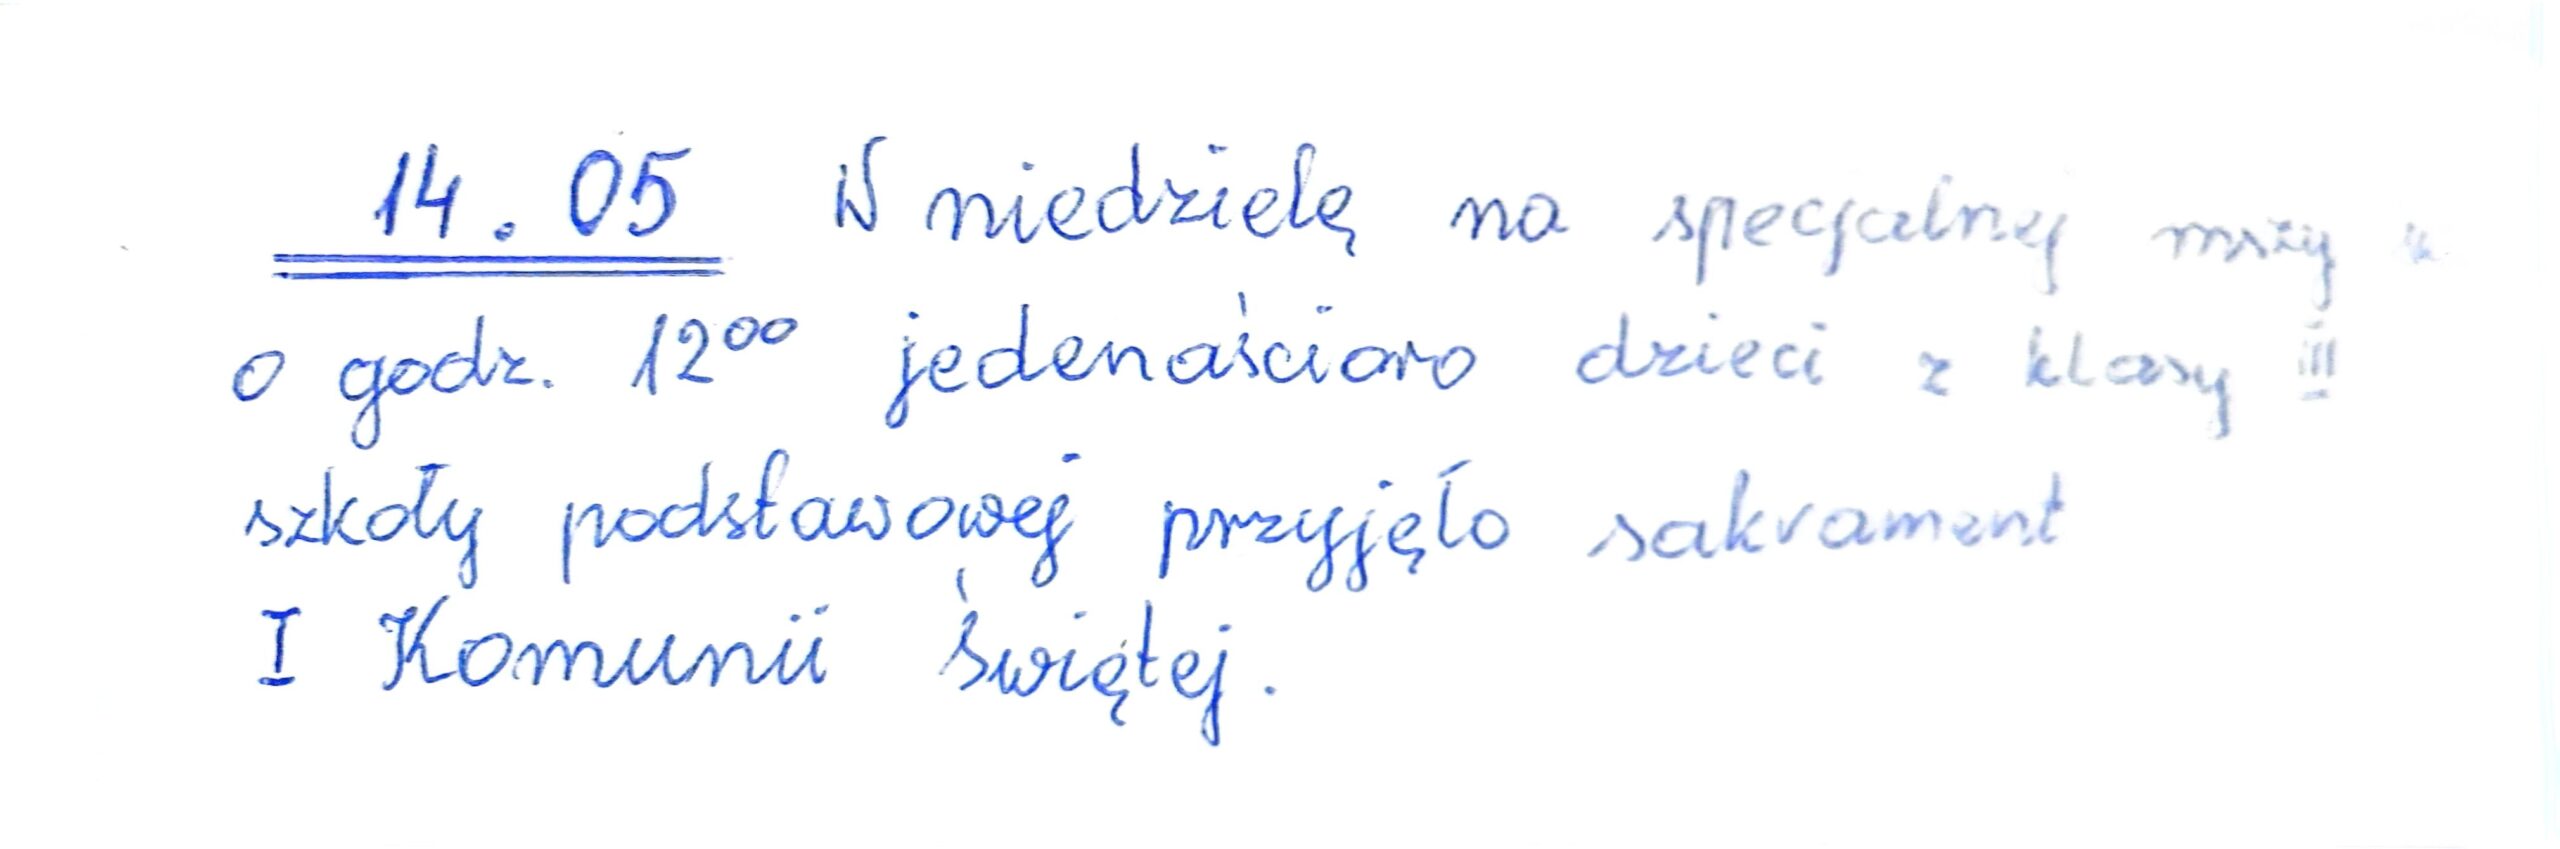 14.05 W niedzielę na specjalnej mszy
o godz. 12⁰⁰ jedenaścioro dzieci z klasy III
szkoły podstawowej przyjęło sakrament
I Komunii Świętej.